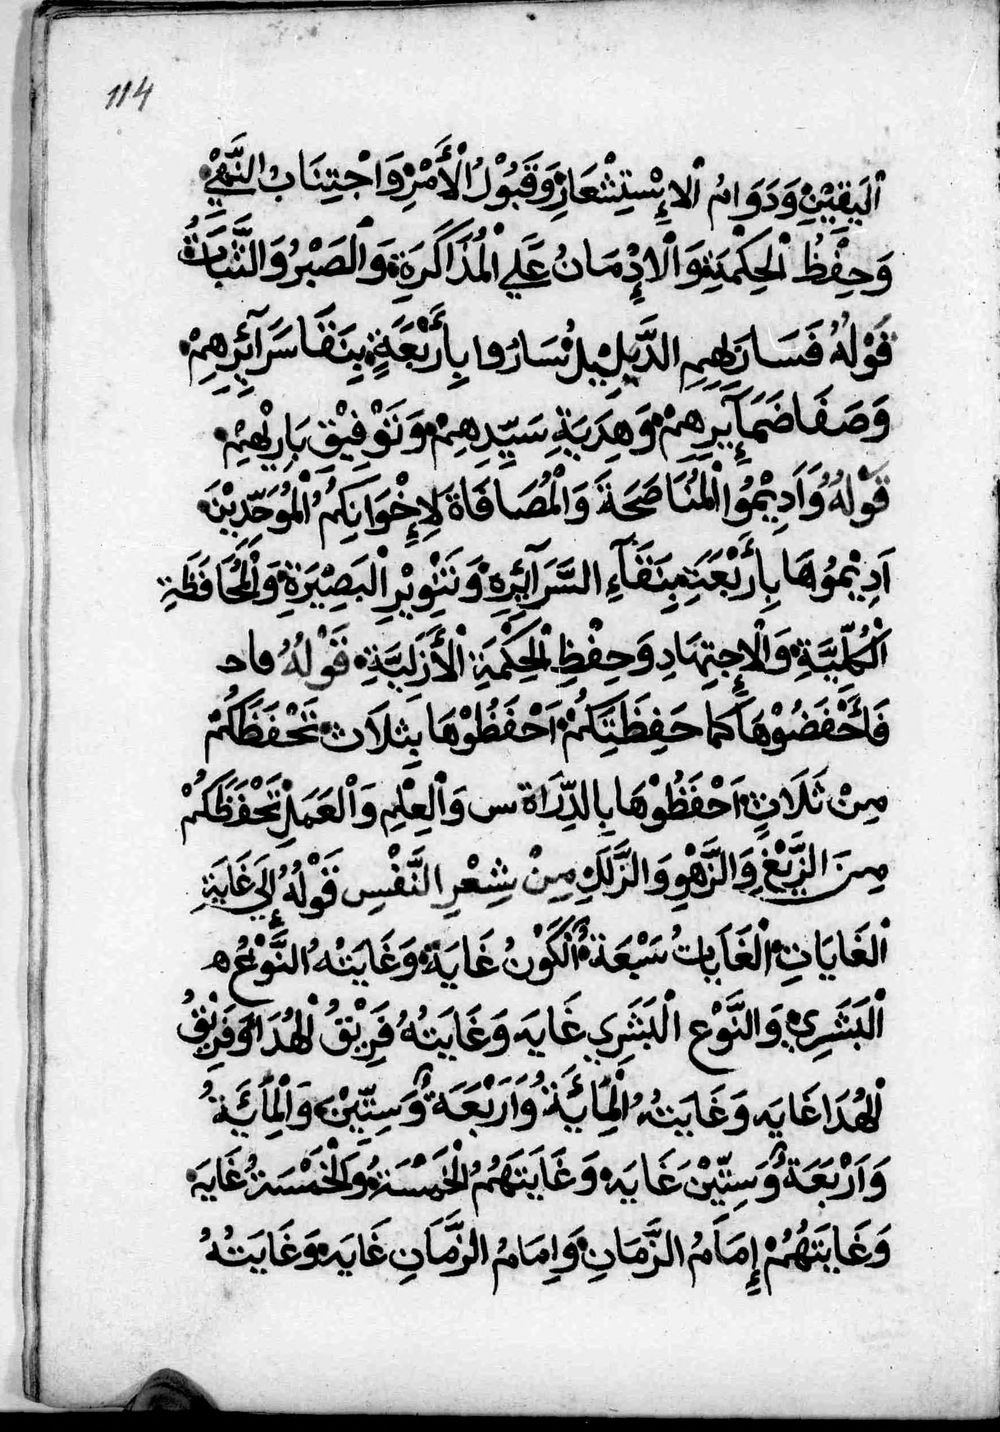 114
اَلْيَقِيْنِ وَدَوَامُ اَلْإِسْتِشْعَارِ وَقَبُوْلُ الْأَمْرِ وَاجْتِنَابُ النَّهْيِ
وَحِفْظُ الْحِكْمَةِ وَالْاِدْمَانُ عَلَي الْمُذَاكَرَةِ وَالصَبْرُ وَالثَّبَاتُ
قَوْلُهُ فَسَارَ بِهِمِ الدَّلِيلُ سَارُوا بِأَرْبَعَةٍ بِنَقَا سَرَآئِرِهِمْ
وَصَفَا ضَمَآيِرِهِمْ وَهِدَيَةِ سَيِّدِهِمْ وَتَوْفِيْقِ بَارِيْهِمْ
قَوْلُهُ وَاَدِيْمُوا الْمُنَاصَحَةَ وَالْمُصَافَاةَ لِاِخْوَانِكُمُ الْمُوَحِّدِيْنَ
اَدِيْمُوهَا بِأَرْبَعَةٍ بِنَقَآءِ السَّرَآئِرِ وَتَنْوِيْرِ الْبَصِيْرَةِ وَالْمُحَافَظَةِ
الْكُلِّيَّةِ وَالْاِجْتِهَادِ وَحِفْظِ الْحِكْمَةِ الْأَزَلِيَّةِ قَوْلُهُ
فَأَحْفَضُوْهَا كَمَا حَفِظَتِكُمْ اَحْفَظُوْهَا بِثِلَاثٍ تَحْفَظَكُمْ
مِنْ ثَلَاثٍ اَحْفَظُوْهَا بِالدِّرَاة س وَالْعِلْمِ وَالْعَمَلِ تَحْفَظَكُمْ
مِنَ الزَّيْغِ وَالزَّهْوِ وَالزَّلَلِ مِنْ شِعْرِ النَّفْسِ قَوْلُهُ إِلَي غَايَةِ
الْغَايَاتِ الْغَايَاتُ سَبْعَةٌ اَلْكَوْنُ غَايَة وَغَايَتُهُ النَّوْعُ ه
الْبَشَرِي وَالنَّوْع الْبَشَرِي غَايَه وَغَايَتُهُ فَرِيْقُ الْهُدَا وَفَرِيْقُ
الْهُدَا غَايَه وَغَايَتُهُ الْمِائَةُ وَاَرْبَعَةٌ وَسِتِّيْن وَالْمِأَئَةُ
وَاَرْبَعَةٌ وَسِتِّيْن غَايَه وَغَايَتَهُمُ الْخَمْسَةُ وَالْخَمْسَةُ غَايَه
وَغَايَتَهُمْ إِمَامُ الزَّمَانِ وَاِمَامُ الزَّمَانِ غَايَه وَغَايَتُهُ